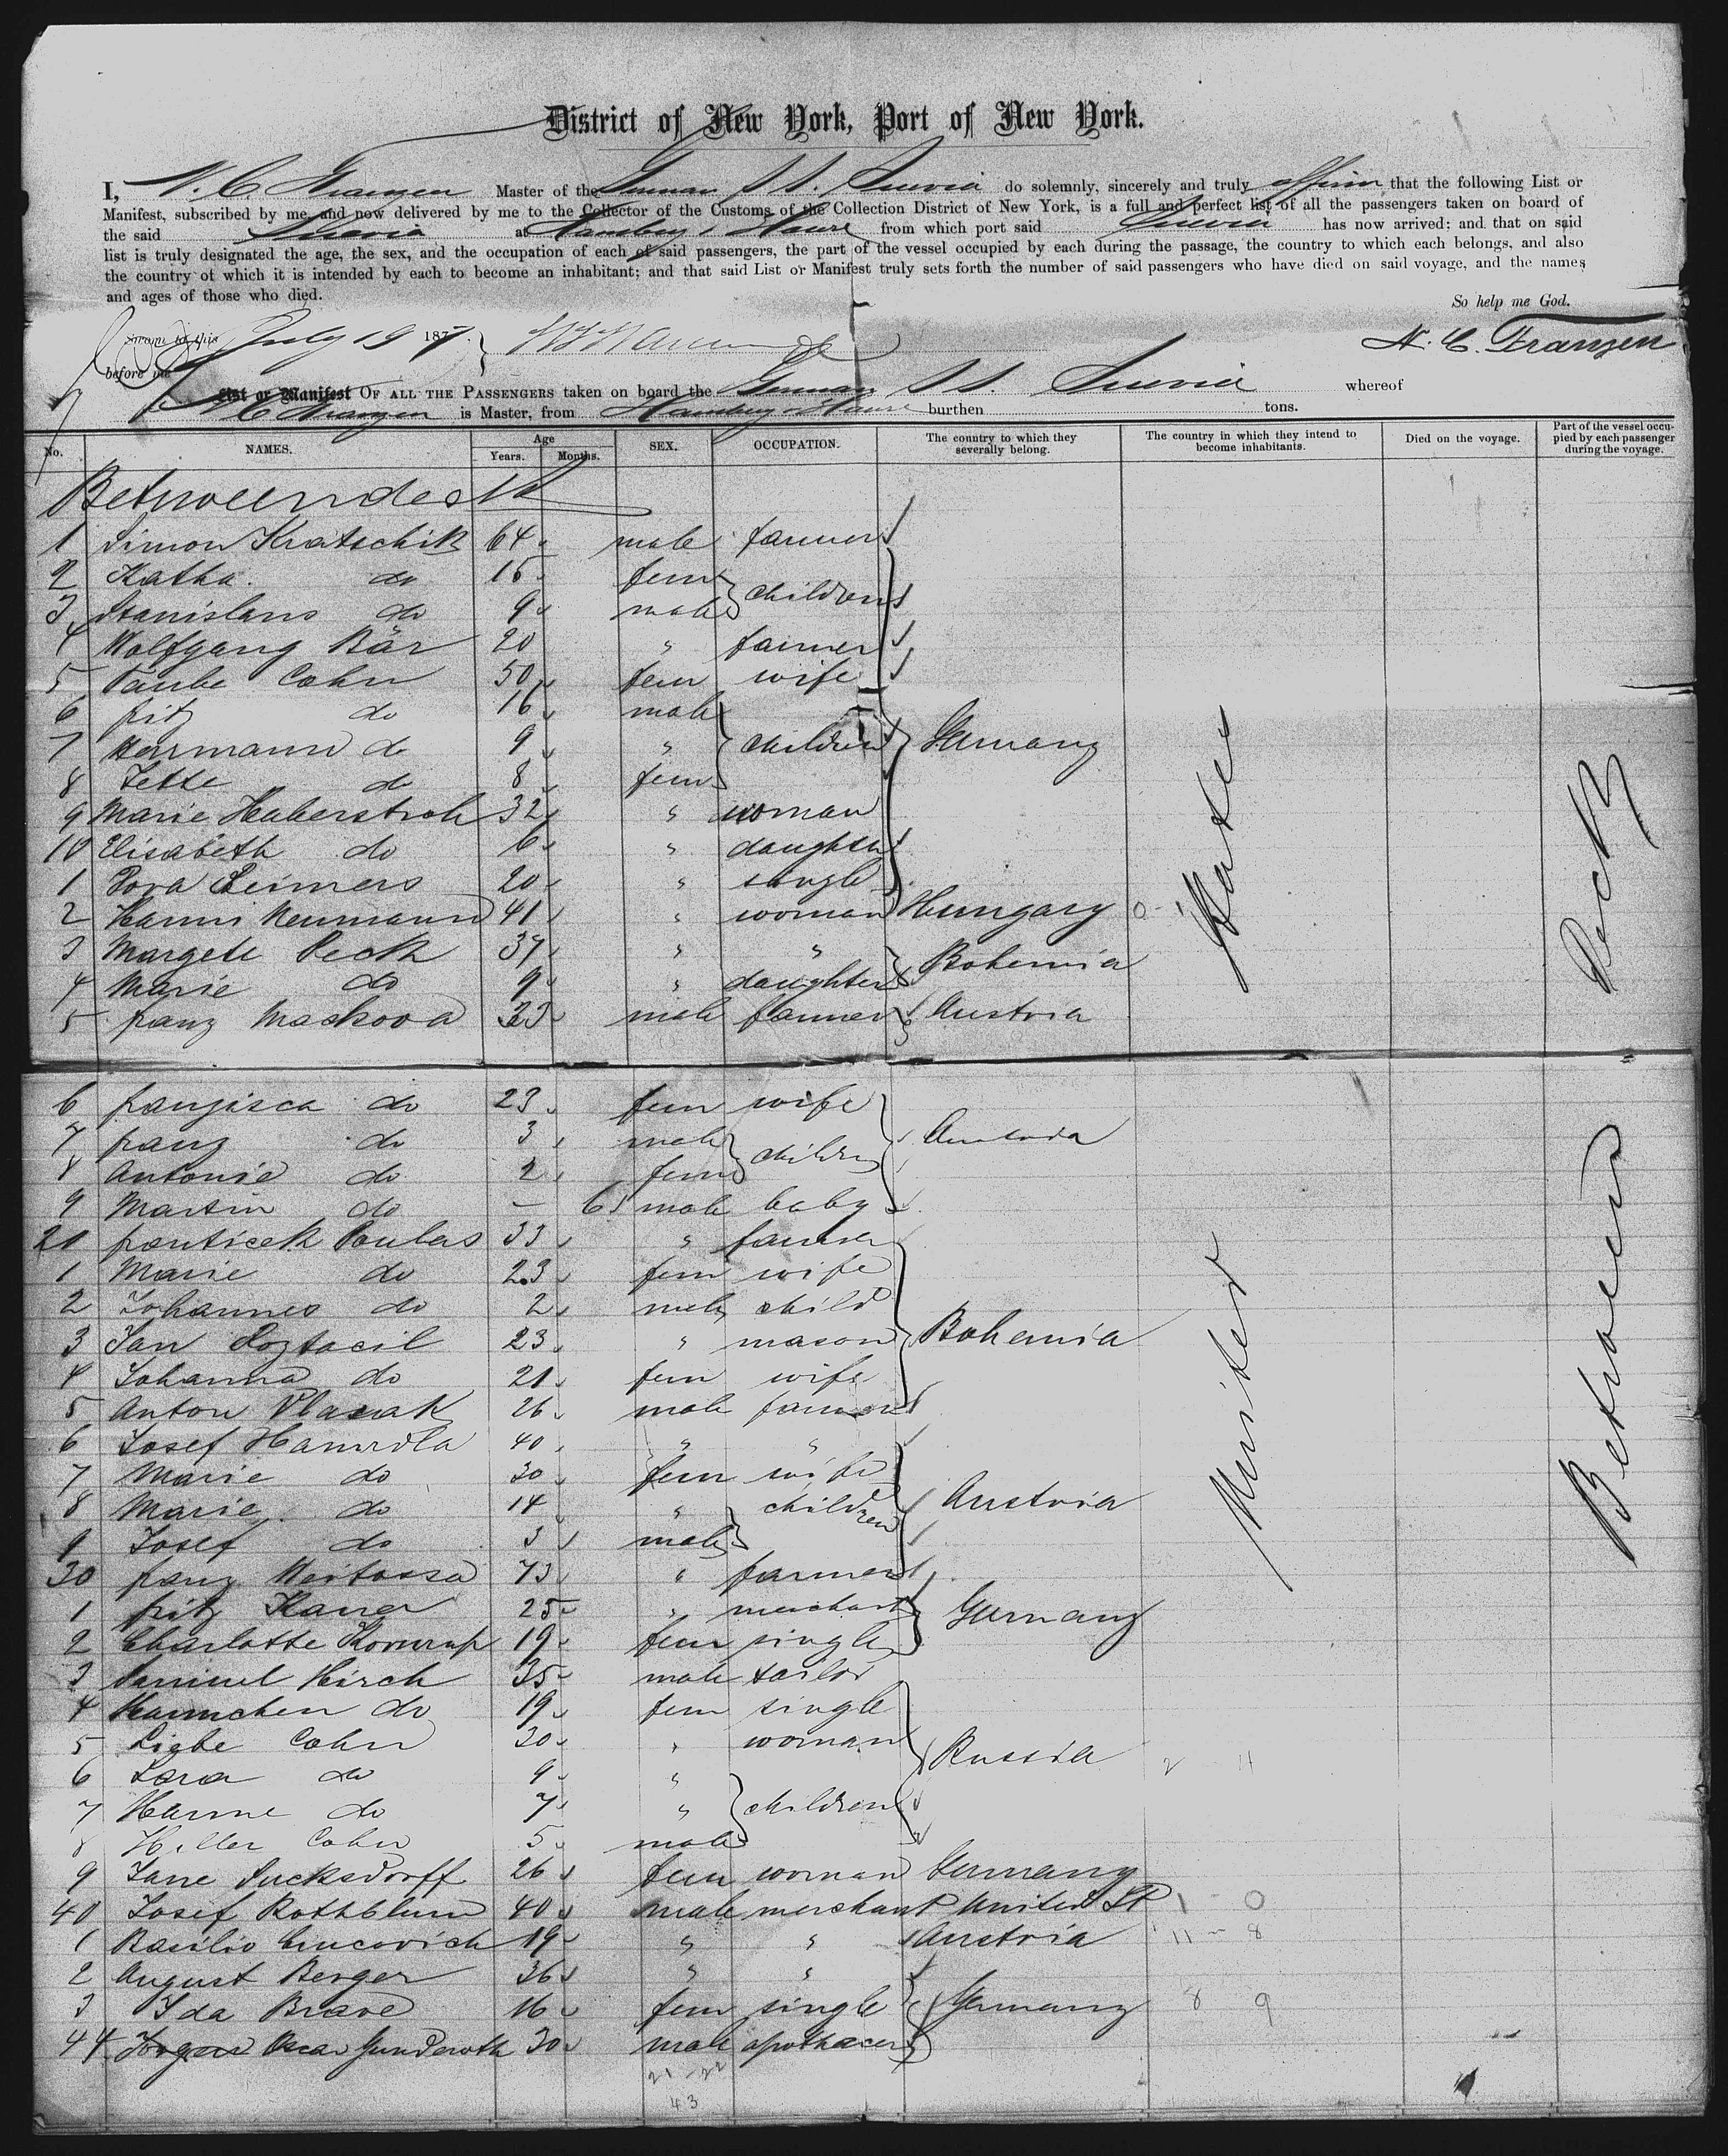 District of New York, Port of New York.
I, N. C. Franzen Master of the German S S. Suevia do solemnly, sincerely and truly affirm that the following List or
Manifest, subscribed by me, and now delivered by me to the Collector of the Customs of the Collection District of New York, is a full and perfect list of all the passengers taken on board of
the said Suevia at Hamburg & Havre from which port said Suevia has now arrived; and that on said
list is truly designated the age, the sex, and the occupation of each of said passengers, the part of the vessel occupied by each during the passage, the country to which each belongs, and also
the country of which it is intended by each to become an inhabitant; and that said List or Manifest truly sets forth the number of said passengers who have died on said voyage, and the names
and ages of those who died.
So help me God.
Sworn to this July 19 187
before me
N. C. Franzen
List or Manifest OF ALL THE PASSENGERS taken on board the German S S. Suevia whereof
N C Franzen is Master, from Hamburg & Havre burthen tons.
No. NAMES. Age Years. Months. SEX. OCCUPATION. The country to which they severally belong. The country in which they intend to become inhabitants. Died on the voyage. Part of the vessel occupied by each passenger during the voyage.
Betweendeck
1 Simon Kratschik 64 male farmer
2 Katha. do 15 fem children
3 Stanislaus do 9 male
4 Wolfgang Bär 20 " farmer
5 Taube Cohn 50 fem wife
6 fritz do 16 male
7 Herrmann do 9 " children Germany
8 Jette do 8 fem
9 Marie Haberstroh 32 " woman
10 Elisabeth do 6 " daughter
1 Dora Reimers 20 " single
2 Hanni Neumann 41 " woman Hungary
3 Margete Peck 37 " " Bohemia
4 Marie do 9 " daughter
5 franz Maskova 33 male farmer Austria
6 franzisca do 23 fem wife
7 franz do 3 male children Austria
8 Antonie do 2 fem
9 Martin do — 6 male baby
20 franticek Poulas 33 " farmer
1 Marie do 23 fem wife
2 Johannes do 2 male child
3 Jan Roztocil 23 " mason Bohemia
4 Johanna do 21 fem wife
5 Anton Vlasak 26 male farmer
6 Josef Hamrdla 40 " "
7 Marie do 30 fem wife
8 Marie do 14 " children Austria
9 Josef do 3 male
30 franz 73 " farmer
1 fritz 25 " merchant Germany
2 Charlotte 19 fem single
3 Samuel Hirch 35 male tailor
4 Hannchen do 19 fem single
5 Liebe Cohn 30 " woman Russia 2 11
6 Sara do 9 "
7 Hanne do 7 " children
8 Hiller Cohn 5 male
9 Jane Sucksdorff 26 fem woman Germany
40 Josef Rothblum 40 male merchant United St 1 - 0
1 Basilio 19 " " Austria 11 - 8
2 August Berger 36 " "
3 Ida Brave 16 fem single Germany 8 9
44 Oscar Gunderoth 30 male apothecer
21 - 22
43
United States
Betweendeck